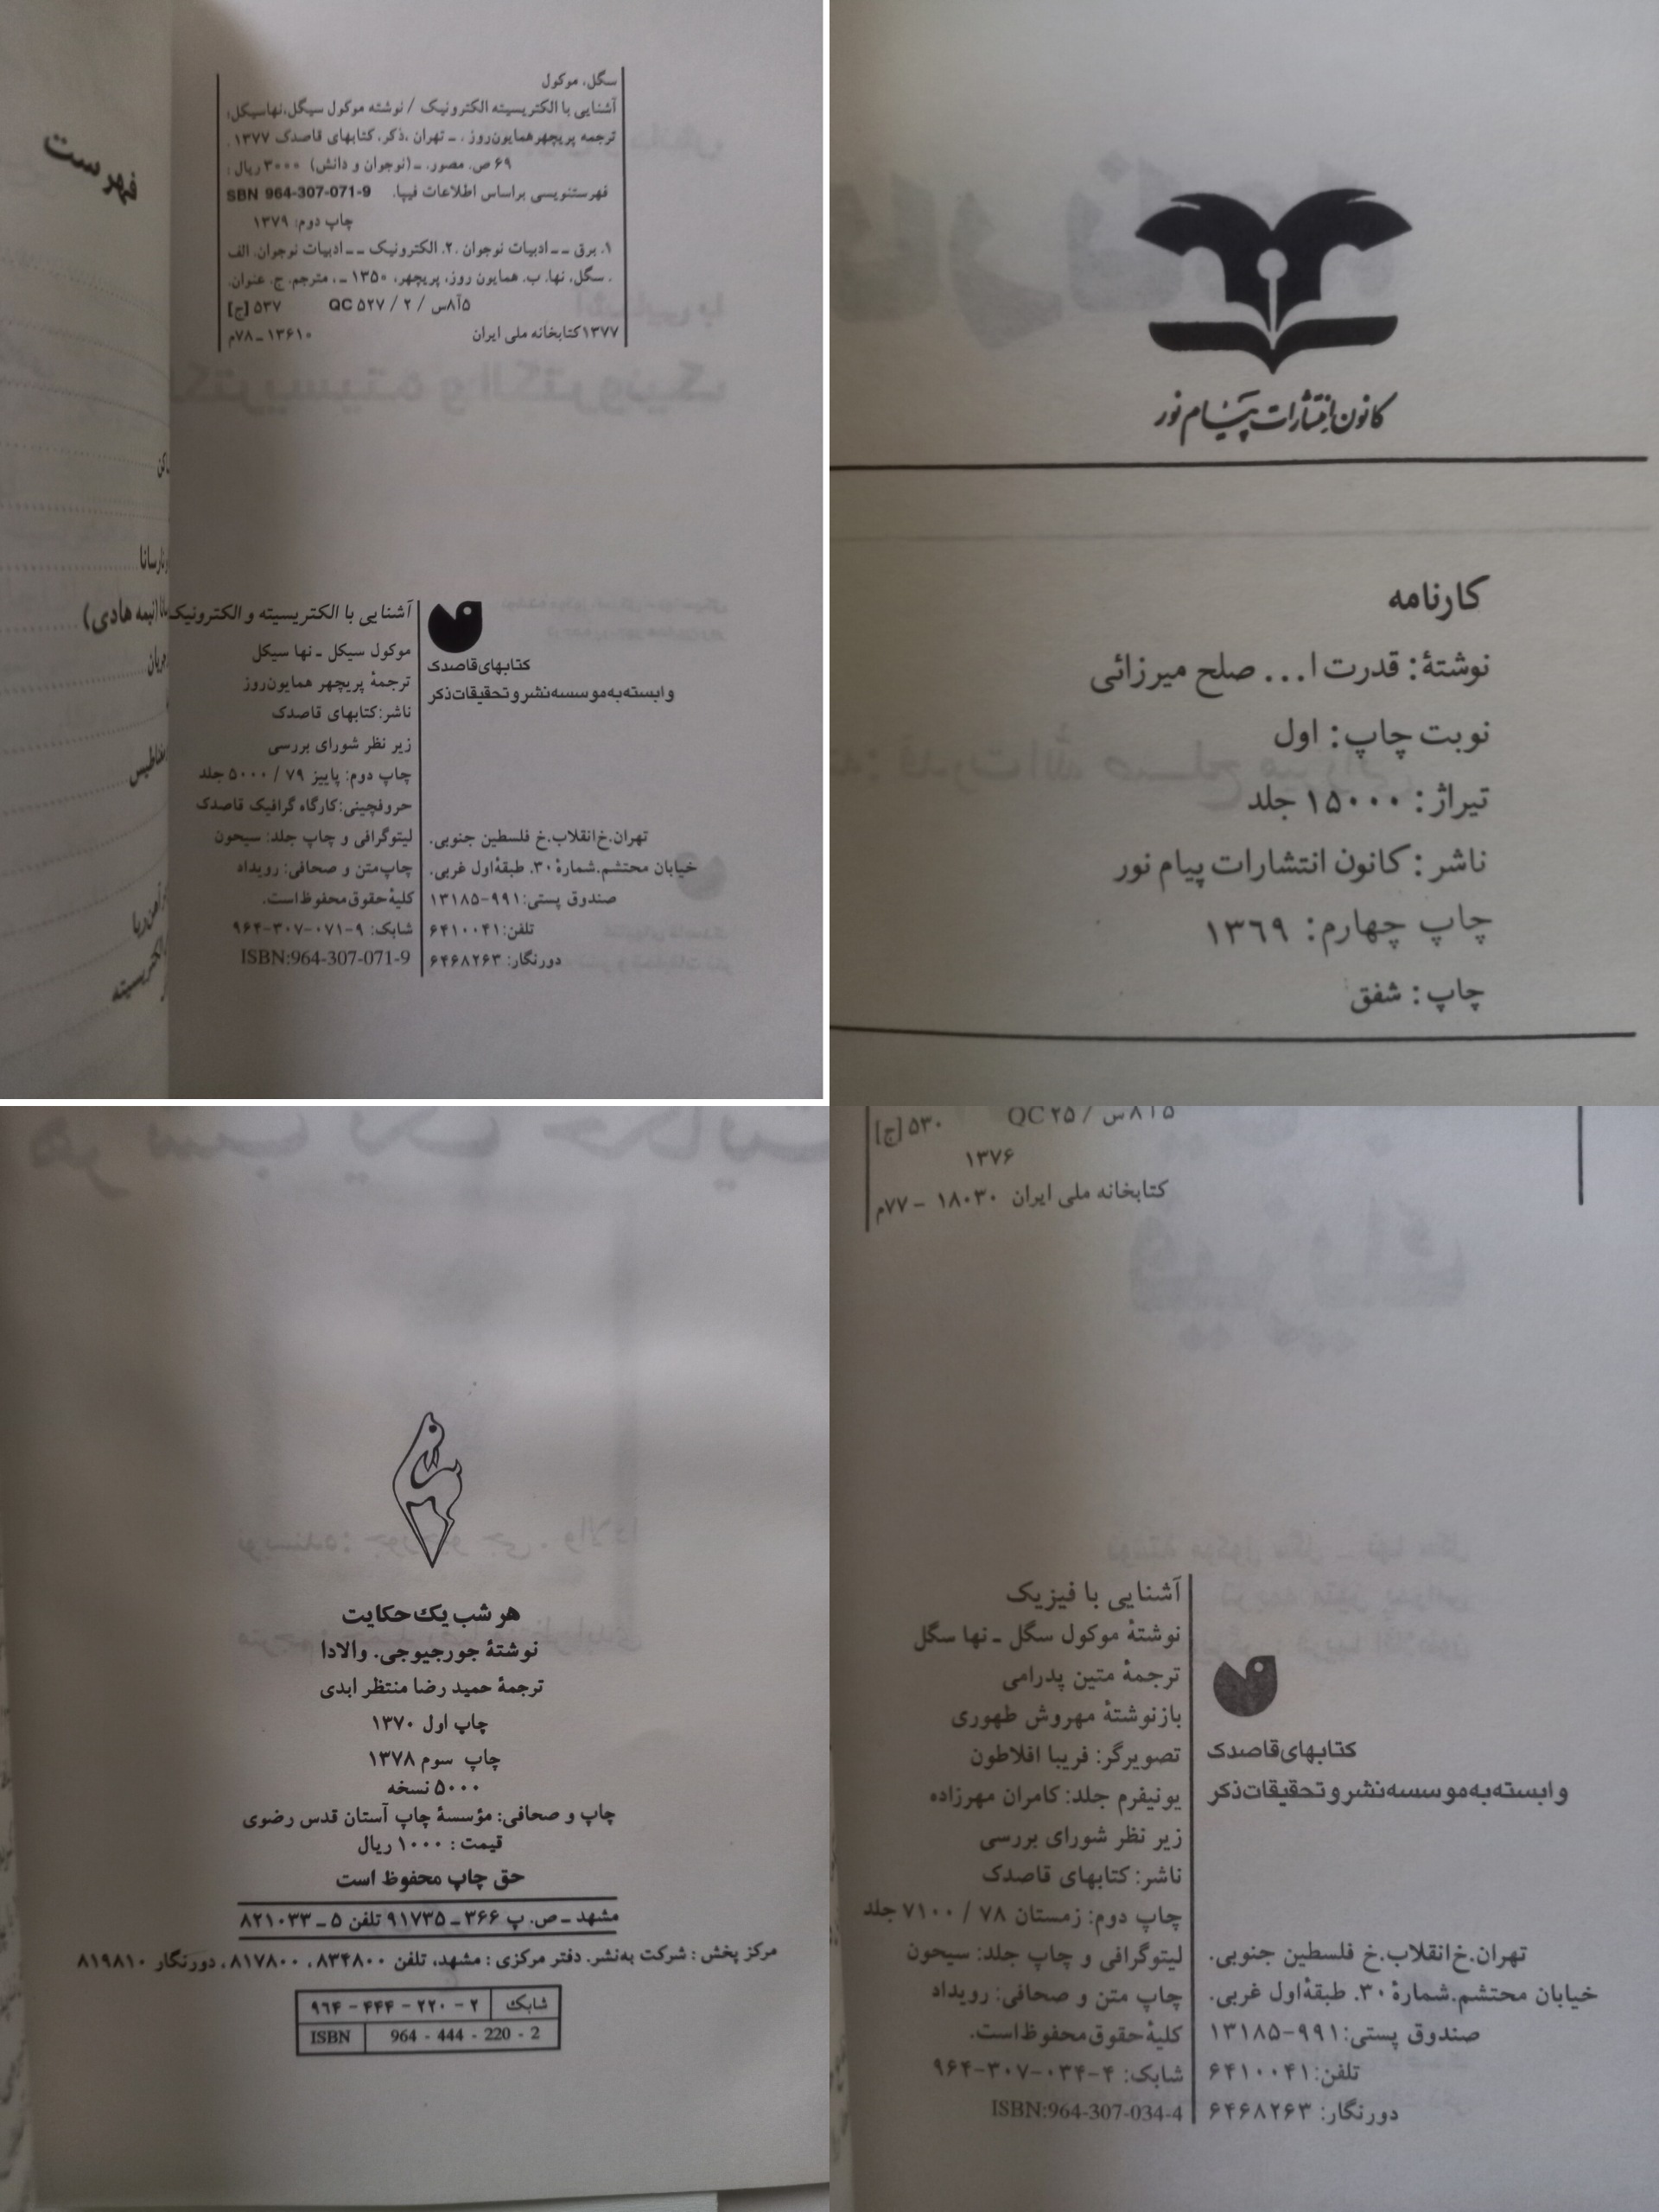 فهرست
سگل، موکول
آشنایی با الکتریسیته الکترونیک / نوشته موکول سیگل،نهاسیگل؛
ترجمه پریچهرهمایون‌روز . ـ تهران ،ذکر، کتابهای قاصدک ۱۳۷۷ .
۶۹ ص. مصور. ـ (نوجوان و دانش) ۳۰۰۰ ریال :
فهرستنویسی براساس اطلاعات فیپا. SBN 964-307-071-9
چاپ دوم: ۱۳۷۹
۱. برق ــ ادبیات نوجوان .۲. الکترونیک ــ ادبیات نوجوان. الف
. سگل، نها. ب. همایون روز، پریچهر، ۱۳۵۰ ـ، مترجم. ج. عنوان.
۵آ۸س / ۲ / ۵۲۷ QC ۵۳۷ [ج]
۱۳۷۷کتابخانه ملی ایران ۱۳۶۱۰ ـ ۷۸م
(نیمه هادی)
آشنایی با الکتریسیته و الکترونیک
موکول سیکل ـ نها سیکل
ترجمهٔ پریچهر همایون‌روز
ناشر:کتابهای قاصدک
زیر نظر شورای بررسی
چاپ دوم: پاییز ۷۹ / ۵۰۰۰ جلد
حروفچینی:کارگاه گرافیک قاصدک
لیتوگرافی و چاپ جلد: سیحون
چاپ‌متن و صحافی: رویداد
کلیهٔ حقوق محفوظ است.
شابک: ۹-۰۷۱-۳۰۷-۹۶۴
ISBN:964-307-071-9
کتابهای قاصدک
وابسته به موسسه نشر و تحقیقات ذکر
تهران.خ‌انقلاب.خ فلسطین جنوبی.
خیابان محتشم.شمارهٔ ۳۰. طبقهٔ‌اول غربی.
صندوق پستی:۹۹۱-۱۳۱۸۵
تلفن:۶۴۱۰۰۴۱
دورنگار: ۶۴۶۸۲۶۳
کانون انتشارات پیام نور
کارنامه
نوشتهٔ: قدرت ا... صلح میرزائی
نوبت چاپ: اول
تیراژ: ۱۵۰۰۰ جلد
ناشر: کانون انتشارات پیام نور
چاپ چهارم: ۱۳۶۹
چاپ: شفق
هر شب یک حکایت
نوشتهٔ جورجیوجی. والادا
ترجمهٔ حمید رضا منتظر ابدی
چاپ اول ۱۳۷۰
چاپ سوم ۱۳۷۸
۵۰۰۰ نسخه
چاپ و صحافی: مؤسسهٔ چاپ آستان قدس رضوی
قیمت : ۱۰۰۰ ریال
حق چاپ محفوظ است
مشهد ـ ص. پ ۳۶۶ ـ ۹۱۷۳۵ تلفن ۵ ـ ۸۲۱۰۳۳
مرکز پخش : شرکت به‌نشر. دفتر مرکزی : مشهد، تلفن ۸۳۴۸۰۰، ۸۱۷۸۰۰، دورنگار ۸۱۹۸۱۰
شابک ۲ - ۲۲۰ - ۴۴۴ - ۹۶۴
ISBN 964 - 444 - 220 - 2
۵آ۸س / ۲۵ QC ۵۳۰ [ج]
۱۳۷۶
کتابخانه ملی ایران ۱۸۰۳۰ - ۷۷م
آشنایی با فیزیک
نوشتهٔ موکول سگل ـ نها سگل
ترجمهٔ متین پدرامی
بازنوشتهٔ مهروش طهوری
تصویرگر: فریبا افلاطون
یونیفرم جلد: کامران مهرزاده
زیر نظر شورای بررسی
ناشر: کتابهای قاصدک
چاپ دوم: زمستان ۷۸ / ۷۱۰۰ جلد
لیتوگرافی و چاپ جلد: سیحون
چاپ متن و صحافی: رویداد
کلیهٔ حقوق محفوظ است.
شابک: ۴-۰۳۴-۳۰۷-۹۶۴
ISBN:964-307-034-4
کتابهای قاصدک
وابسته به موسسه نشر و تحقیقات ذکر
تهران.خ‌انقلاب.خ فلسطین جنوبی.
خیابان محتشم.شمارهٔ ۳۰. طبقهٔ‌اول غربی.
صندوق پستی:۹۹۱-۱۳۱۸۵
تلفن:۶۴۱۰۰۴۱
دورنگار: ۶۴۶۸۲۶۳